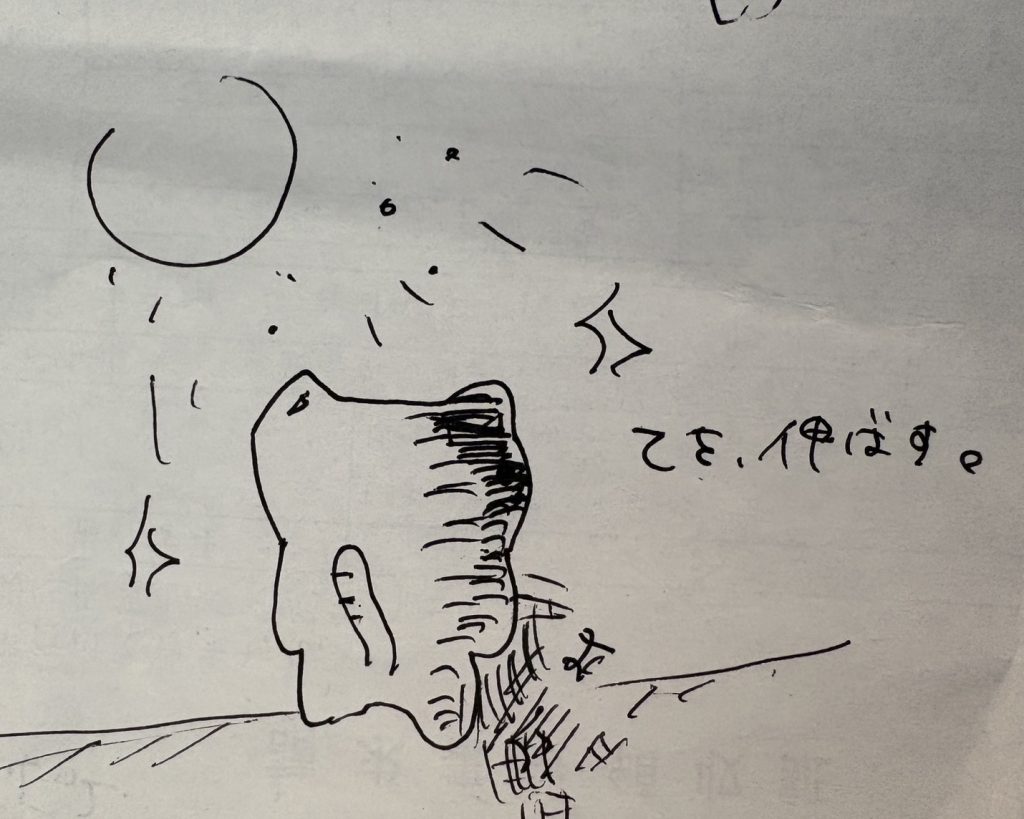 てを、伸ばす。